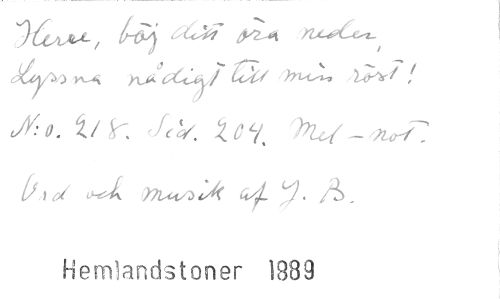 Herre, böj ditt öra neder,
Lyssna nådigt till min röst!
N:o. 218. Sid. 204. Mel-not.
Ord och musik af J. B.
Hemlandstoner 1889